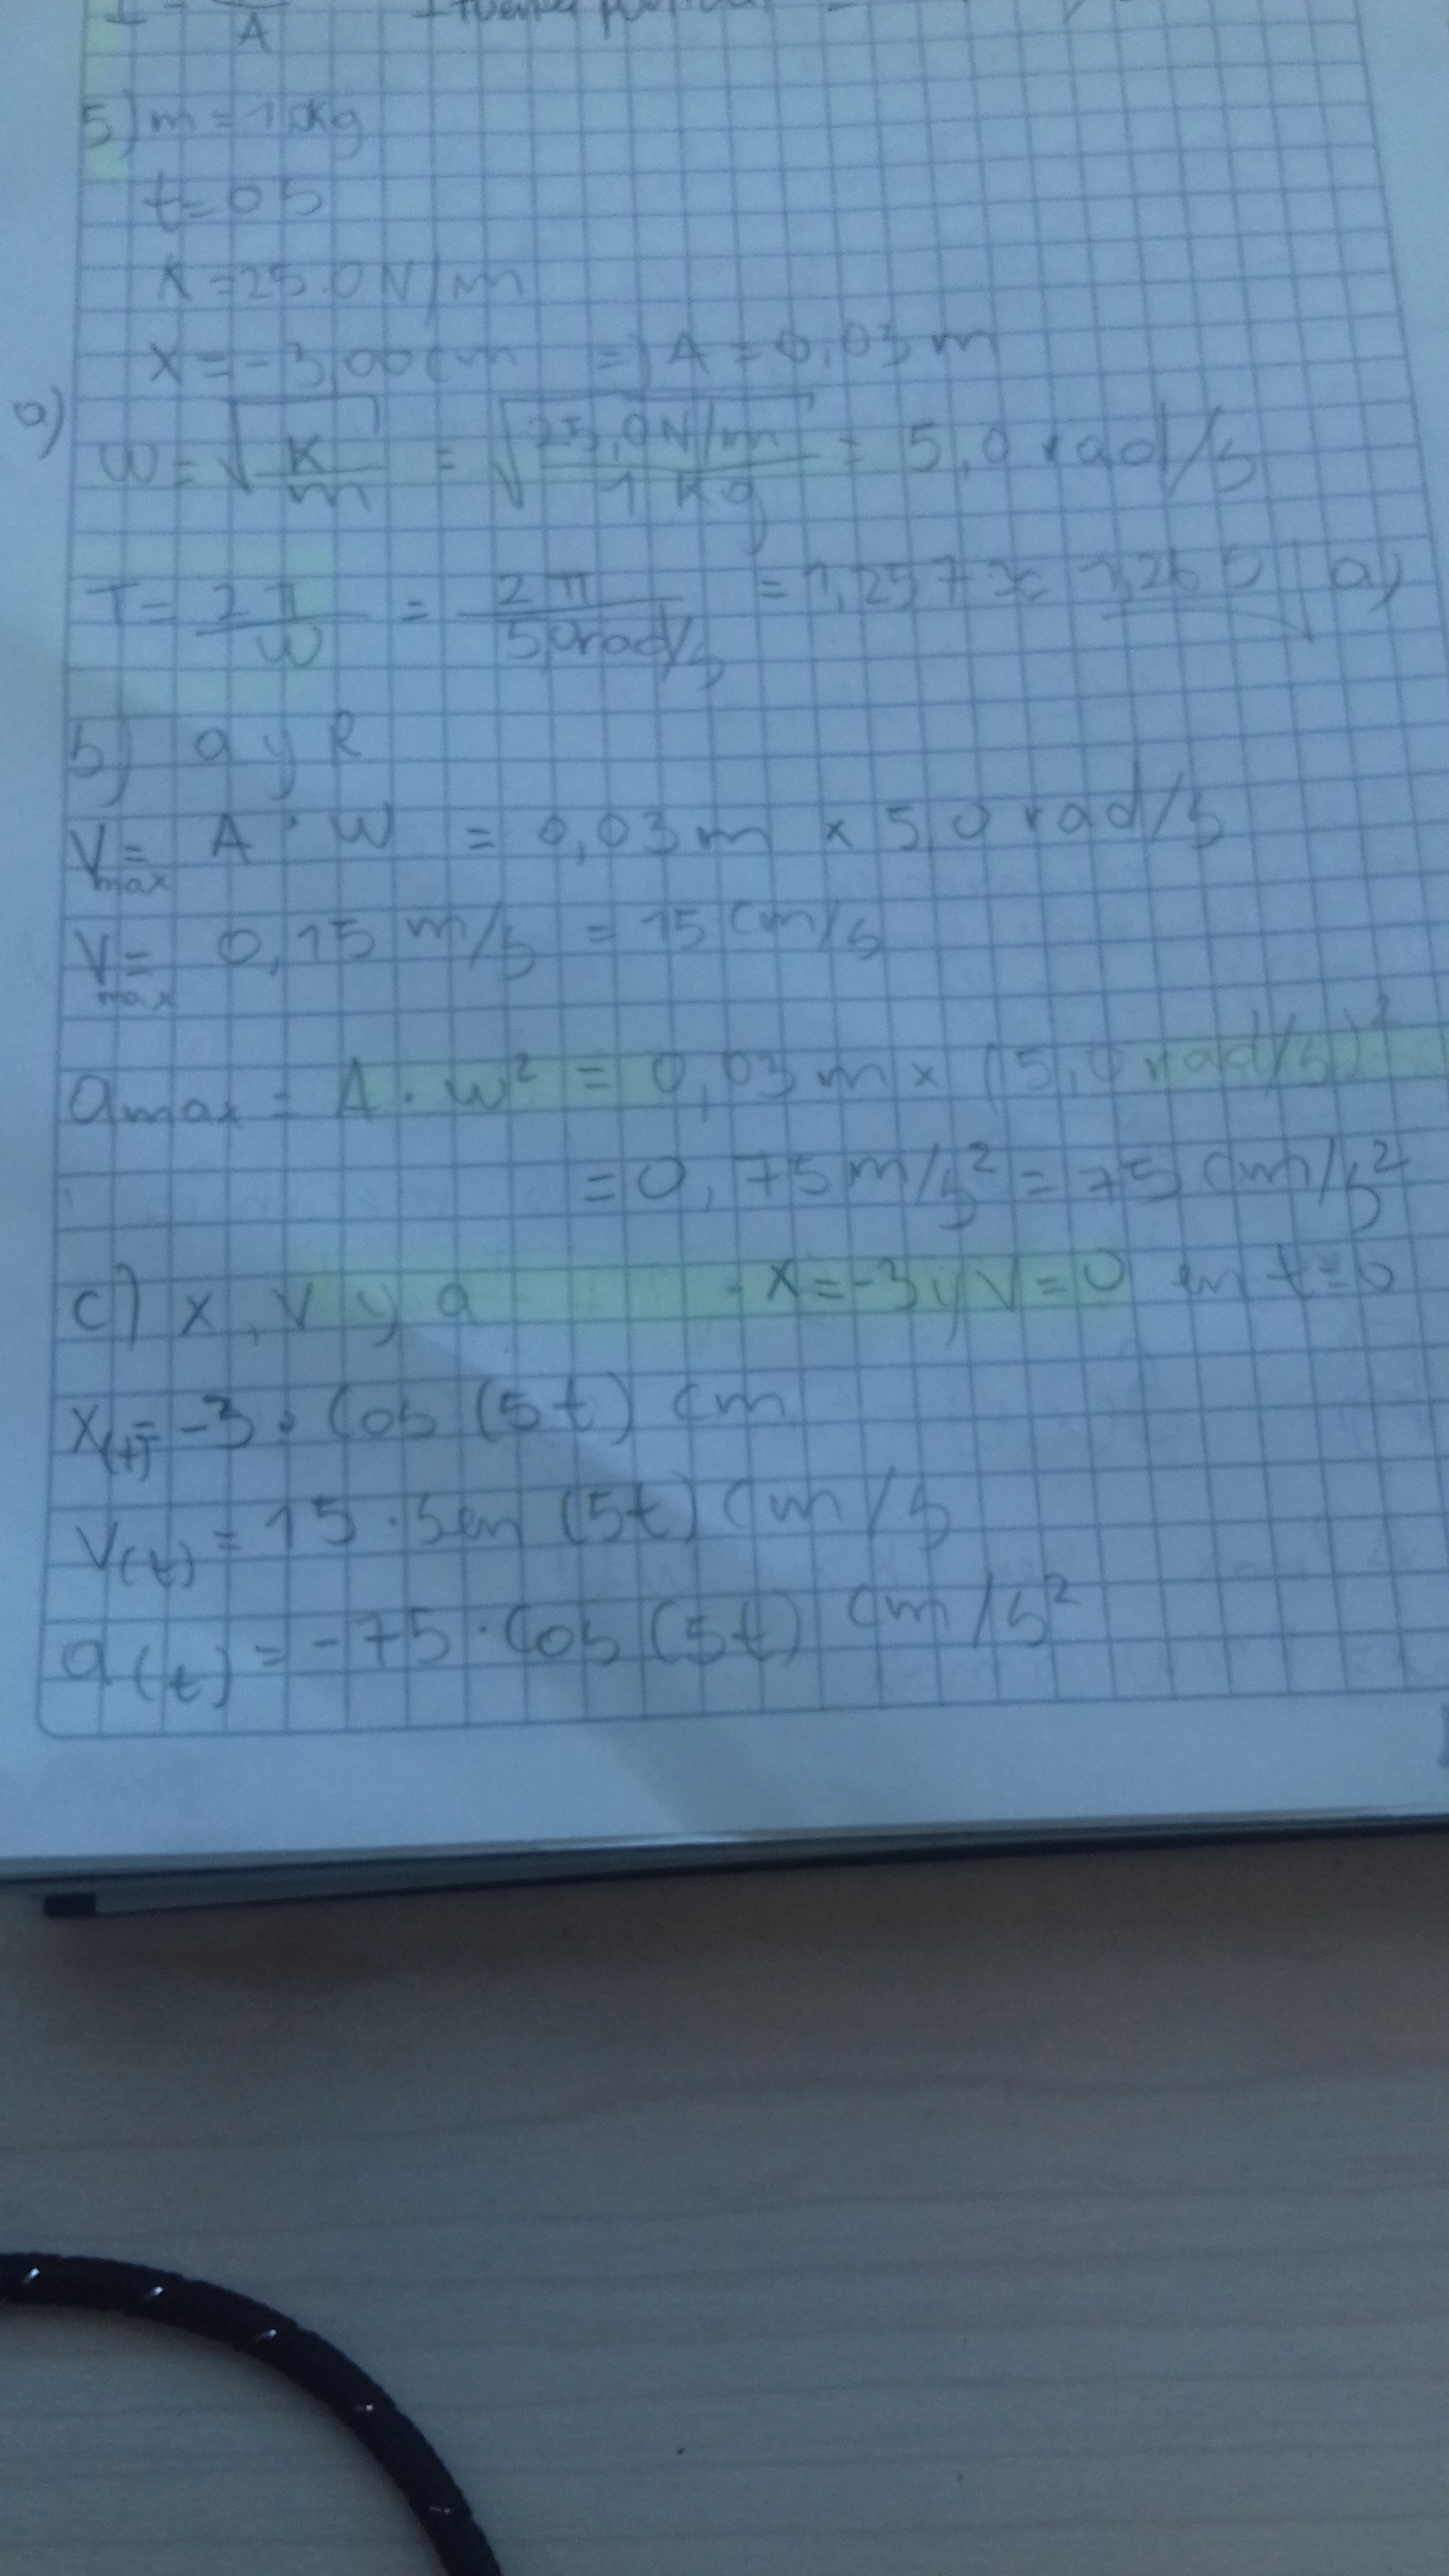 A
5) m = 1,0kg
t = 0 s
K = 25.0 N/m
X = -3,00 cm => A = 0,03 m
a)
W = √K/m = √25,0N/m / 1 Kg = 5,0 rad/s
T = 2π/W = 2π / 5,0rad/s = 1,257 ≈ 1,26 s a)
b) a y R
Vmax = A · W = 0,03 m × 5,0 rad/s
Vmax = 0,15 m/s = 15 cm/s
amax = A · w² = 0,03 m × (5,0 rad/s)²
= 0,75 m/s² = 75 cm/s²
c) x, v y a - x = -3 y v = 0 en t = 0
X(t) = -3 · Cos (5t) cm
V(t) = 15 · Sen (5t) cm/s
a(t) = -75 · Cos (5t) cm/s²